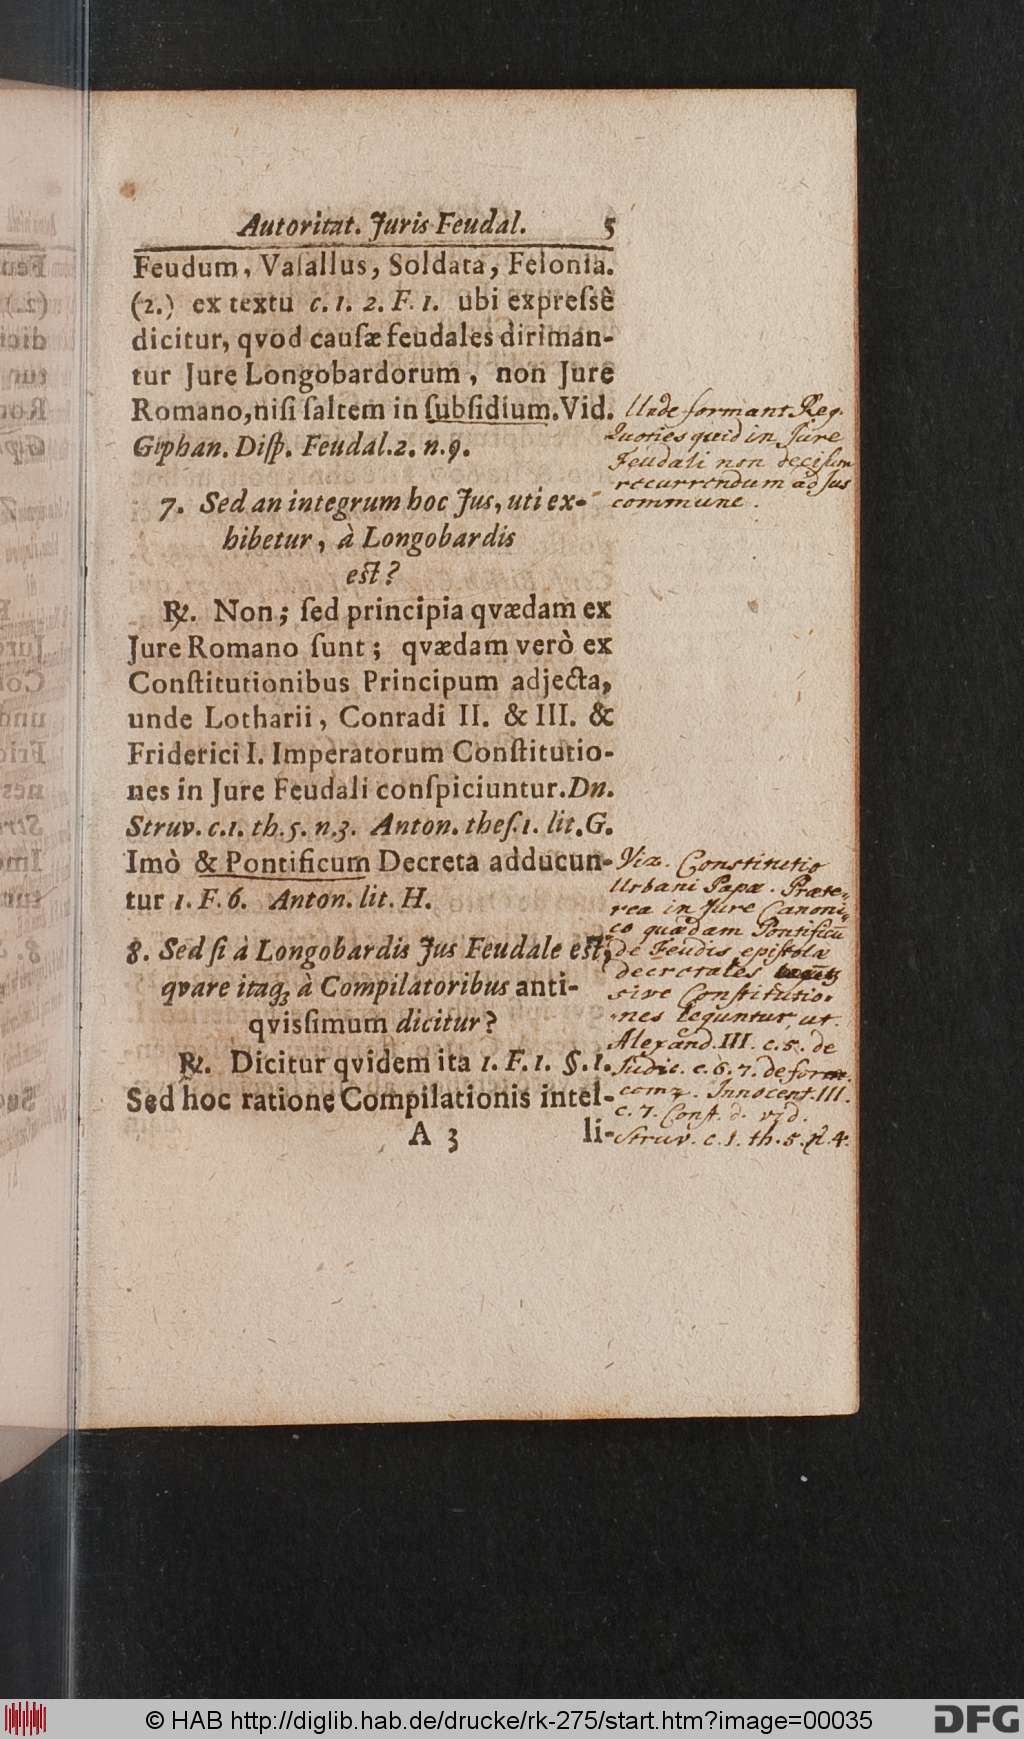 Autoritat. Juris Feudal. 5
Feudum, Vaſallus, Soldata, Felonia.
(2.) ex textu c. 1. 2. F. 1. ubi expreſsè
dicitur, qvod cauſæ feudales diriman-
tur Jure Longobardorum, non Jure
Romano, niſi ſaltem in ſubſidium. Vid.
Giphan. Diſp. Feudal. 2. n. 9.
Unde formant Reg.
Quoties quid in Jure
Feudali non decisum
recurrendum ad Jus
commune.
7. Sed an integrum hoc Jus, uti ex-
hibetur, à Longobardis
eſt?
℞. Non; ſed principia qvædam ex
Jure Romano ſunt; qvædam verò ex
Conſtitutionibus Principum adjecta,
unde Lotharii, Conradi II. & III. &
Friderici I. Imperatorum Conſtitutio-
nes in Jure Feudali conſpiciuntur. Dn.
Struv. c. 1. th. 5. n. 3. Anton. theſ. 1. lit. G.
Imò & Pontificum Decreta adducun-
tur 1. F. 6. Anton. lit. H.
8. Sed ſi à Longobardis Jus Feudale eſt,
qvare itaq; à Compilatoribus anti-
qviſſimum dicitur?
℞. Dicitur qvidem ita 1. F. 1. §. 1.
Sed hoc ratione Compilationis intel-
A 3 li-
Viz. Constitutio
Urbani Papæ. Præte-
rea in Jure Canoni-
co quædam Pontificū
de Feudis epiſtolæ
decretales
sive Conſtitutio-
nes leguntur, ut.
Alexand. III. c. 5. de
Judic. c. 6. 7. de for.
comp. Innocent. III.
c. 7. Conſt. d. vid.
Struv. c. 1. th. 5. n. 4.
© HAB http://diglib.hab.de/drucke/rk-275/start.htm?image=00035
DFG